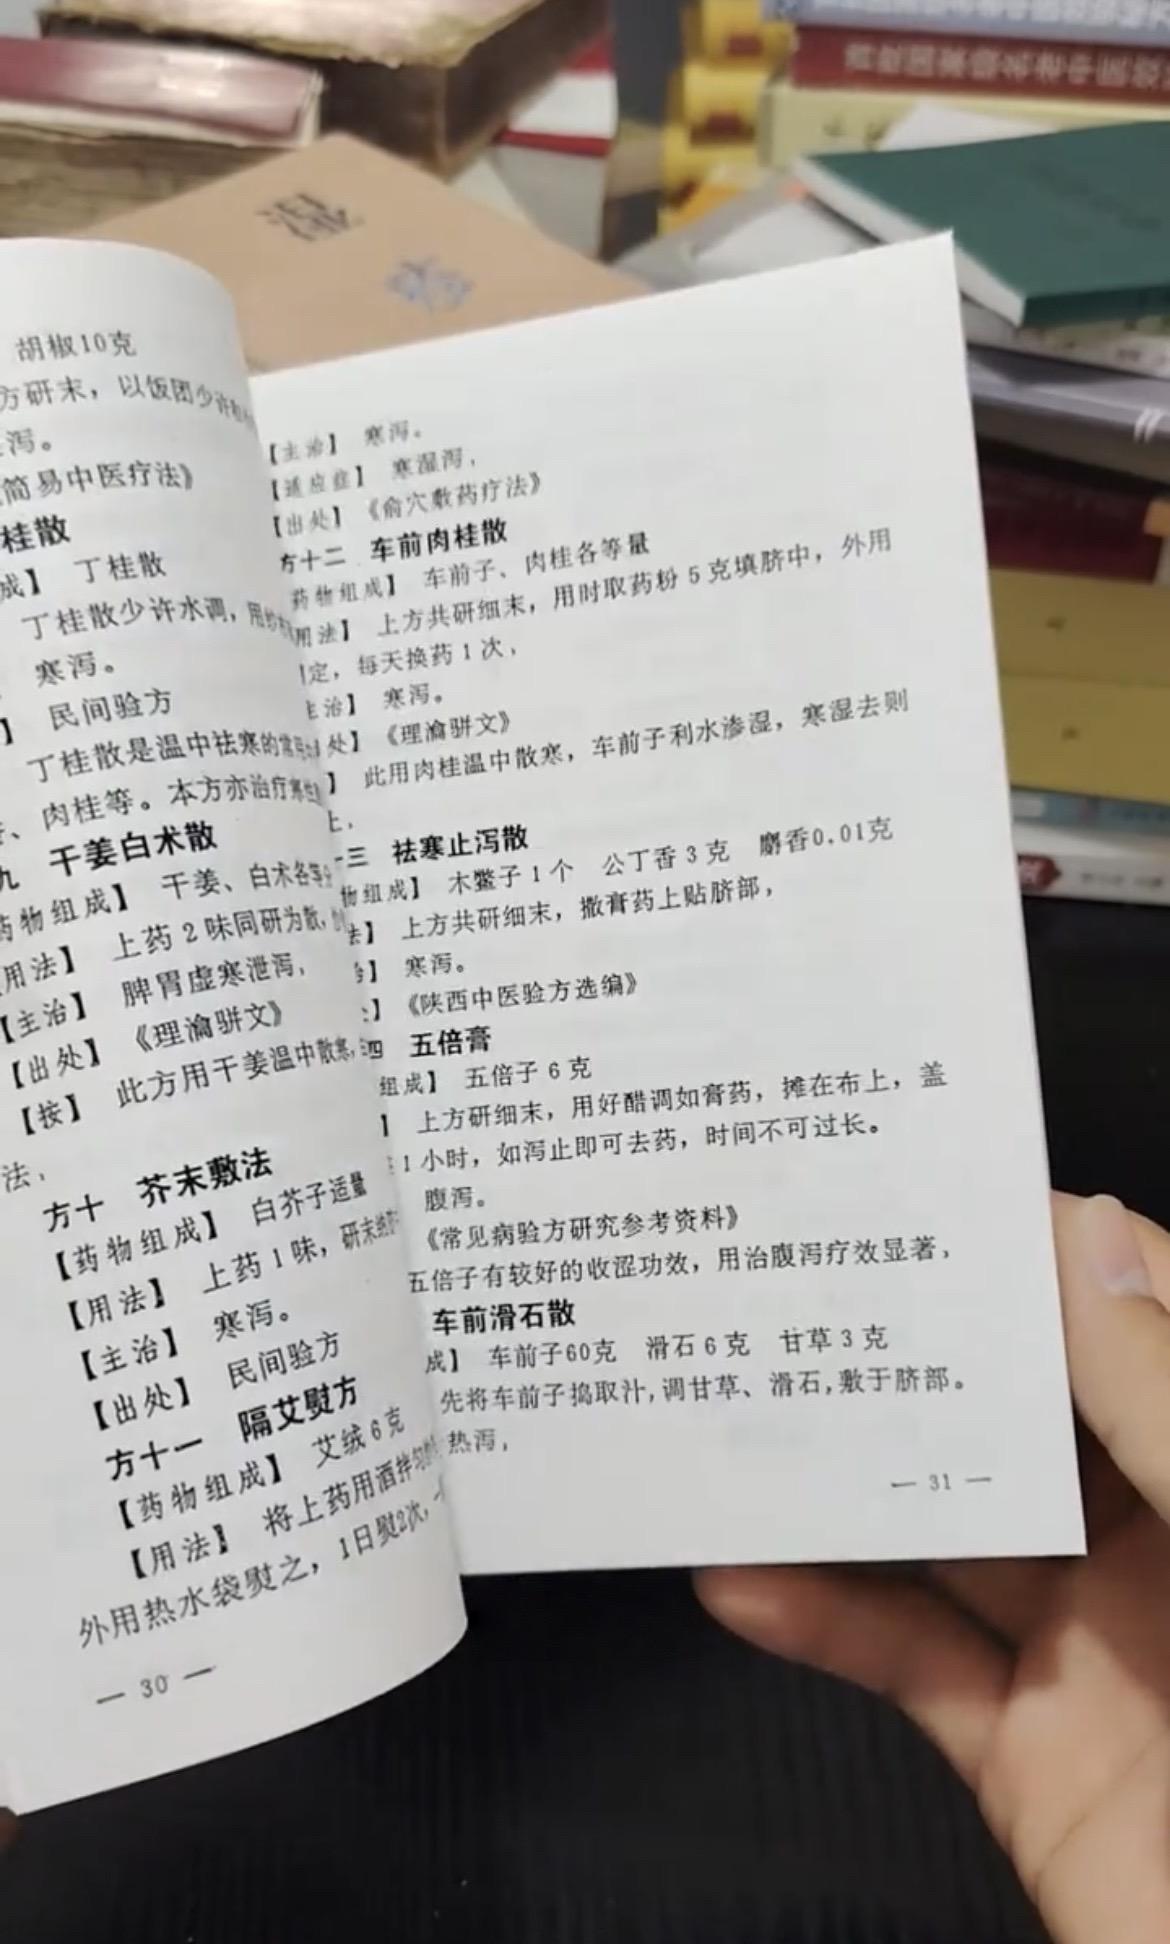 胡椒10克
方研末，以饭团少许
泻。
简易中医疗法》
桂散
成】 丁桂散
丁桂散少许水调，用纱
寒泻。
】 民间验方
丁桂散是温中祛寒的常用
、肉桂等。本方亦治疗寒性
九 干姜白术散
药物组成】 干姜、白术各等分
【用法】 上药2味同研为散，
【主治】 脾胃虚寒泄泻，
【出处】 《理瀹骈文》
【按】 此方用干姜温中散寒，
法，
方十 芥末敷法
【药物组成】 白芥子适量
【用法】 上药1味，研末
【主治】 寒泻。
【出处】 民间验方
方十一 隔艾熨方
【药物组成】 艾绒6克
【用法】 将上药用酒拌
外用热水袋熨之，1日熨2次，
— 30 —
【主治】 寒泻。
【适应症】 寒湿泻，
【出处】 《俞穴敷药疗法》
方十二 车前肉桂散
药物组成】 车前子、肉桂各等量
用法】 上方共研细末，用时取药粉5克填脐中，外用
定，每天换药1次，
主治】 寒泻。
处】 《理瀹骈文》
】 此用肉桂温中散寒，车前子利水渗湿，寒湿去则
上，
十三 祛寒止泻散
物组成】 木鳖子1个 公丁香3克 麝香0.01克
法】 上方共研细末，撒膏药上贴脐部，
】 寒泻。
】 《陕西中医验方选编》
四 五倍膏
组成】 五倍子6克
】 上方研细末，用好醋调如膏药，摊在布上，盖
1小时，如泻止即可去药，时间不可过长。
腹泻。
《常见病验方研究参考资料》
五倍子有较好的收涩功效，用治腹泻疗效显著，
车前滑石散
成】 车前子60克 滑石6克 甘草3克
先将车前子捣取汁,调甘草、滑石,敷于脐部。
热泻，
— 31 —